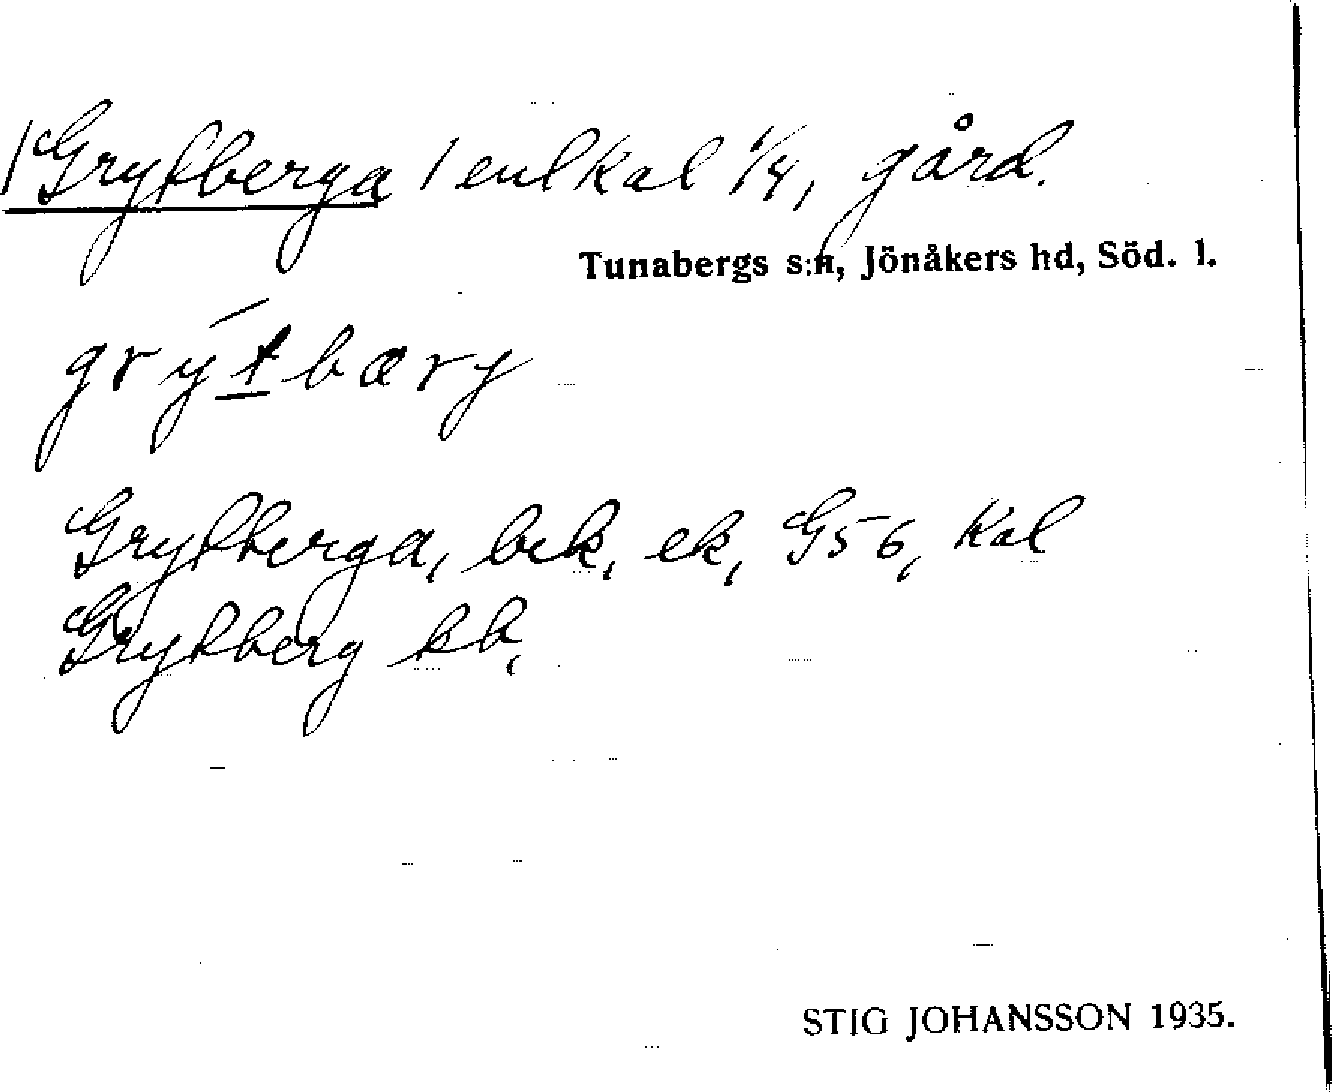 /Grytberga / enl Kal 1/4, gård.
Tunabergs s:n, Jönåkers hd, Söd. l.
grýt bærj
Grytberga, bek, ek, G56, Kal
Grytberg kb,
STIG JOHANSSON 1935.